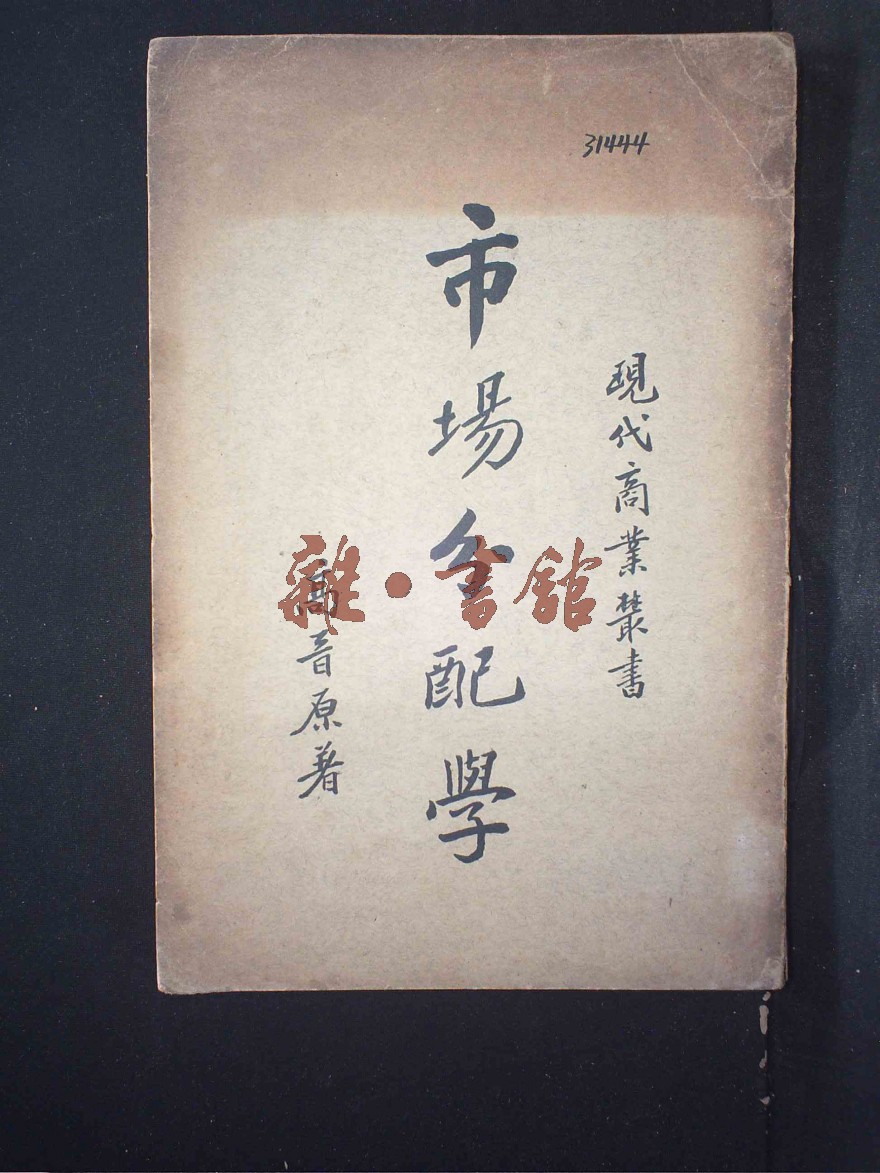 31444
現代商業叢書
市場分配學
高晋原著
離•書館